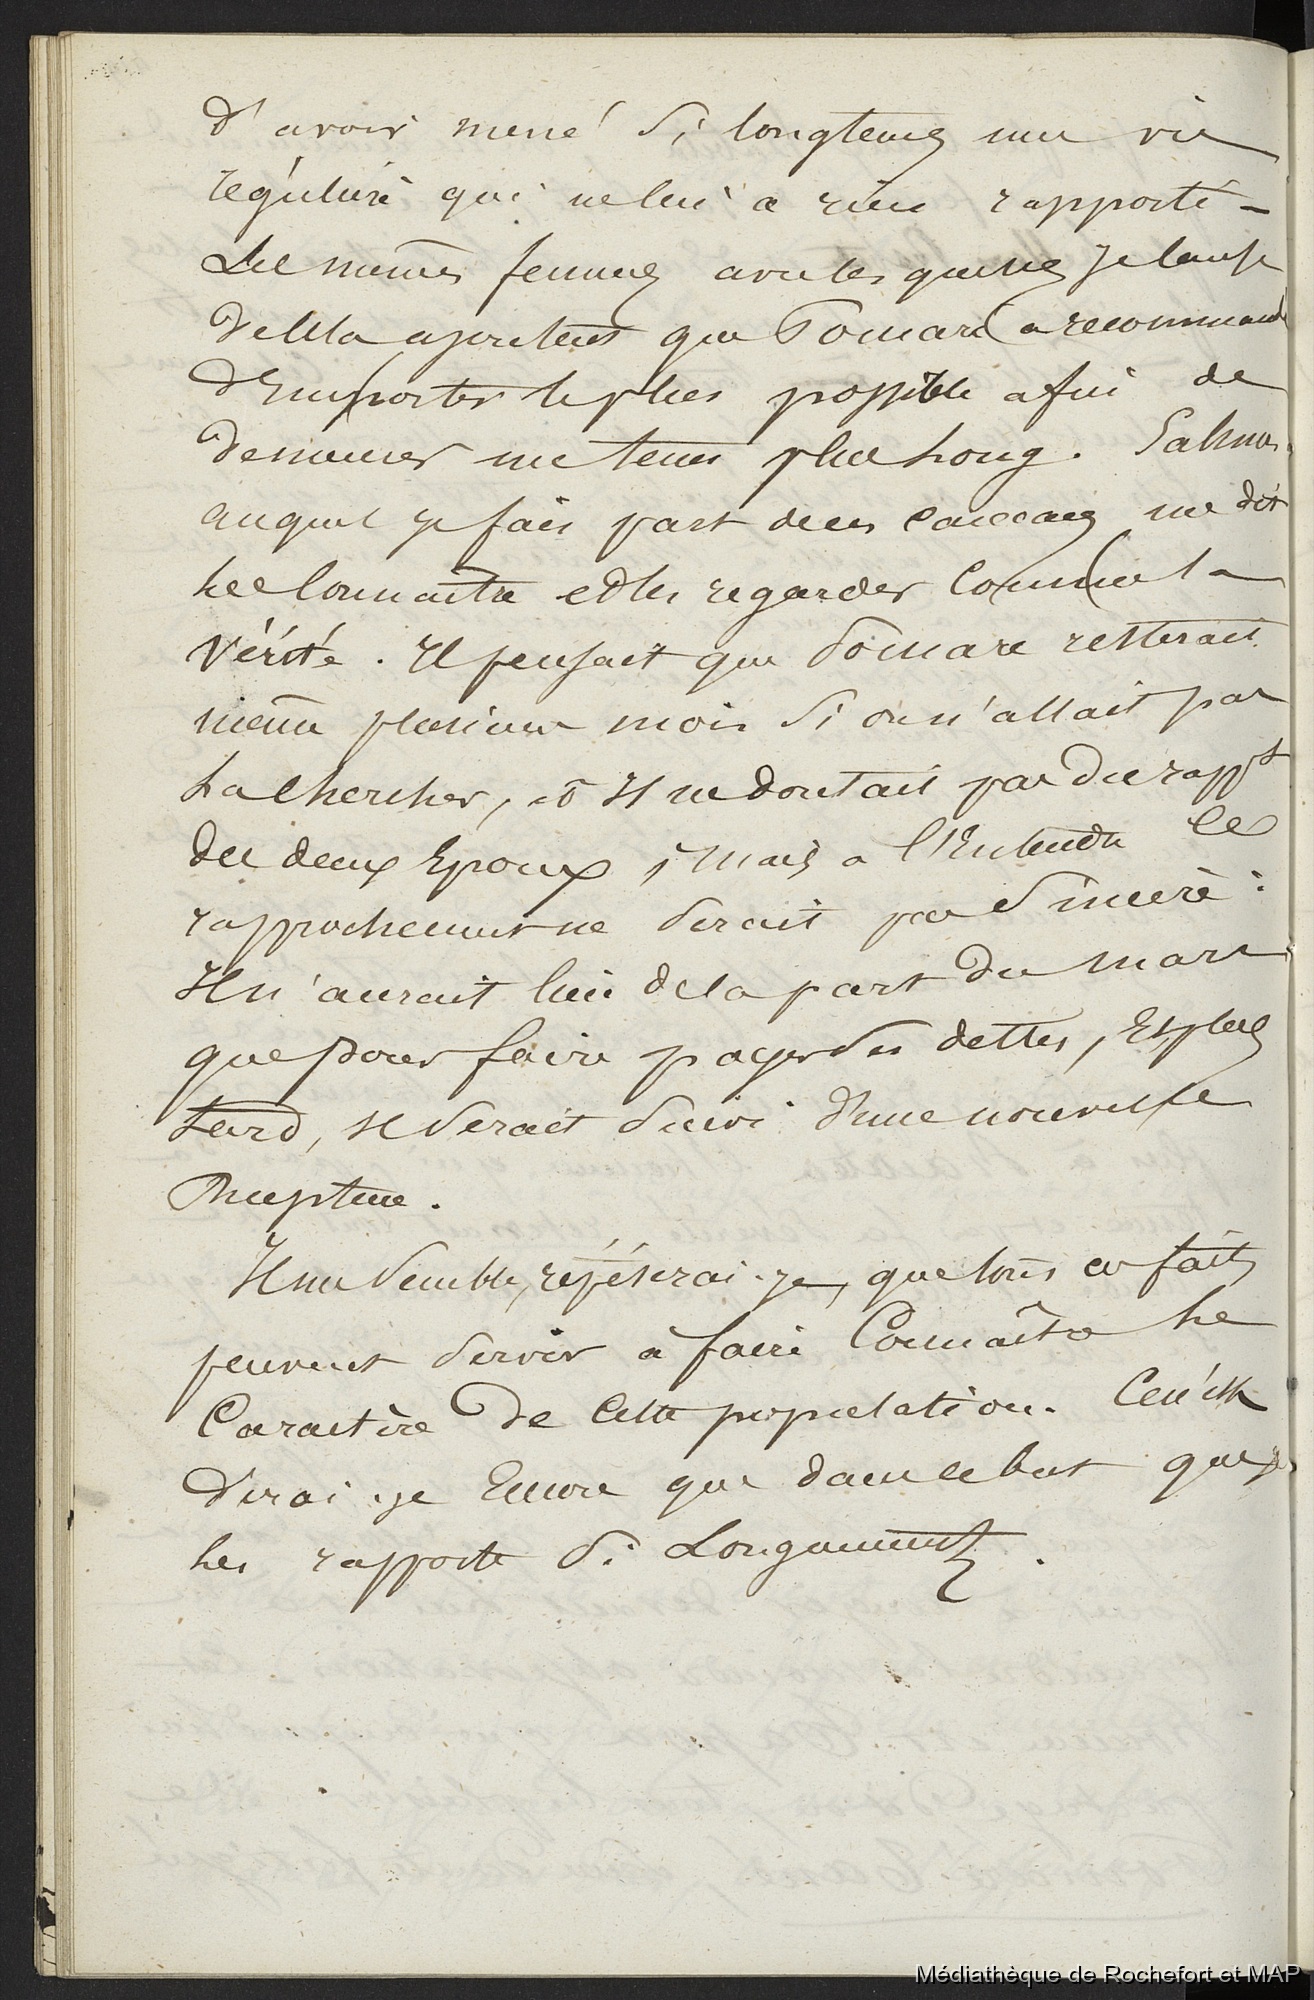 d'avoir mené si longtems une vie
régulière qui ne lui a rien rapporté –
Les mêmes femmes avec lesquelles je cause
de cela ajoutent que Pomare a recommandé
d'emporter le plus possible afin de
demeurer un tems plus long. Salmon
auquel je fais part de ces cancans me dit
les connaitre et les regarder comme la
vérité. Il pensait que Pomare resterait
même plusieurs mois si on n'allait pas
la chercher, et Il ne doutait pas du rappt
des deux Epoux, mais a l'Entendre ce
rapprochement ne serait pas sincère :
Il n'aurait lieu de la part du mari
que pour faire payer ses dettes, Et plus
tard, il serait suivi d'une nouvelle
Rupture.
Il me semble, répéterai-je, que tous ces faits
peuvent servir à faire Connaître le
Caractère de cette population. Ce n'est
dirai-je Encore que dans ce but que je
les rapporte si Longuement.
Médiathèque de Rochefort et MAP